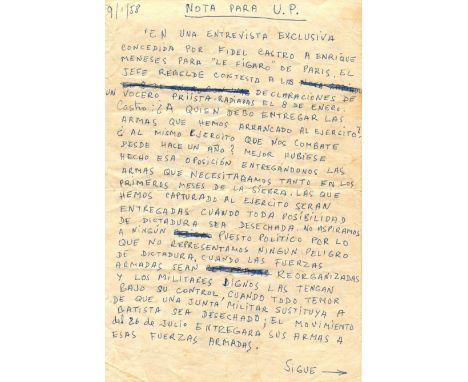 9/1/58
NOTA PARA U.P.
"EN UNA ENTREVISTA EXCLUSIVA
CONCEDIDA POR FIDEL CASTRO A ENRIQUE
MENESES PARA "LE FÍGARO" DE PARIS, EL
JEFE REBELDE CONTESTA A LAS
DECLARACIONES DE
UN VOCERO PRIISTA RADIADAS EL 8 DE ENERO.
Castro: ¿A QUIEN DEBO ENTREGAR LAS
ARMAS QUE HEMOS ARRANCADO AL EJERCITO?
¿AL MISMO EJERCITO QUE NOS COMBATE
DESDE HACE UN AÑO? MEJOR HUBIESE
HECHO ESA OPOSICIÓN ENTREGANDONOS LAS
ARMAS QUE NECESITABAMOS TANTO EN LOS
PRIMEROS MESES DE LA SIERRA. LAS QUE
HEMOS CAPTURADO AL EJERCITO SERÁN
ENTREGADAS CUANDO TODA POSIBILIDAD
DE DICTADURA SEA DESECHADA. NO ASPIRAMOS
A NINGÚN PUESTO POLÍTICO POR LO
QUE NO REPRESENTAMOS NINGÚN PELIGRO
DE DICTADURA. CUANDO LAS FUERZAS
ARMADAS SEAN REORGANIZADAS
Y LOS MILITARES DIGNOS LAS TENGAN
BAJO SU CONTROL, CUANDO TODO TEMOR
DE QUE UNA JUNTA MILITAR SUSTITUYA A
BATISTA SEA DESECHADO; EL MOVIMIENTO
del 26 DE JULIO ENTREGARA SUS ARMAS A
ESAS FUERZAS ARMADAS.
SIGUE →